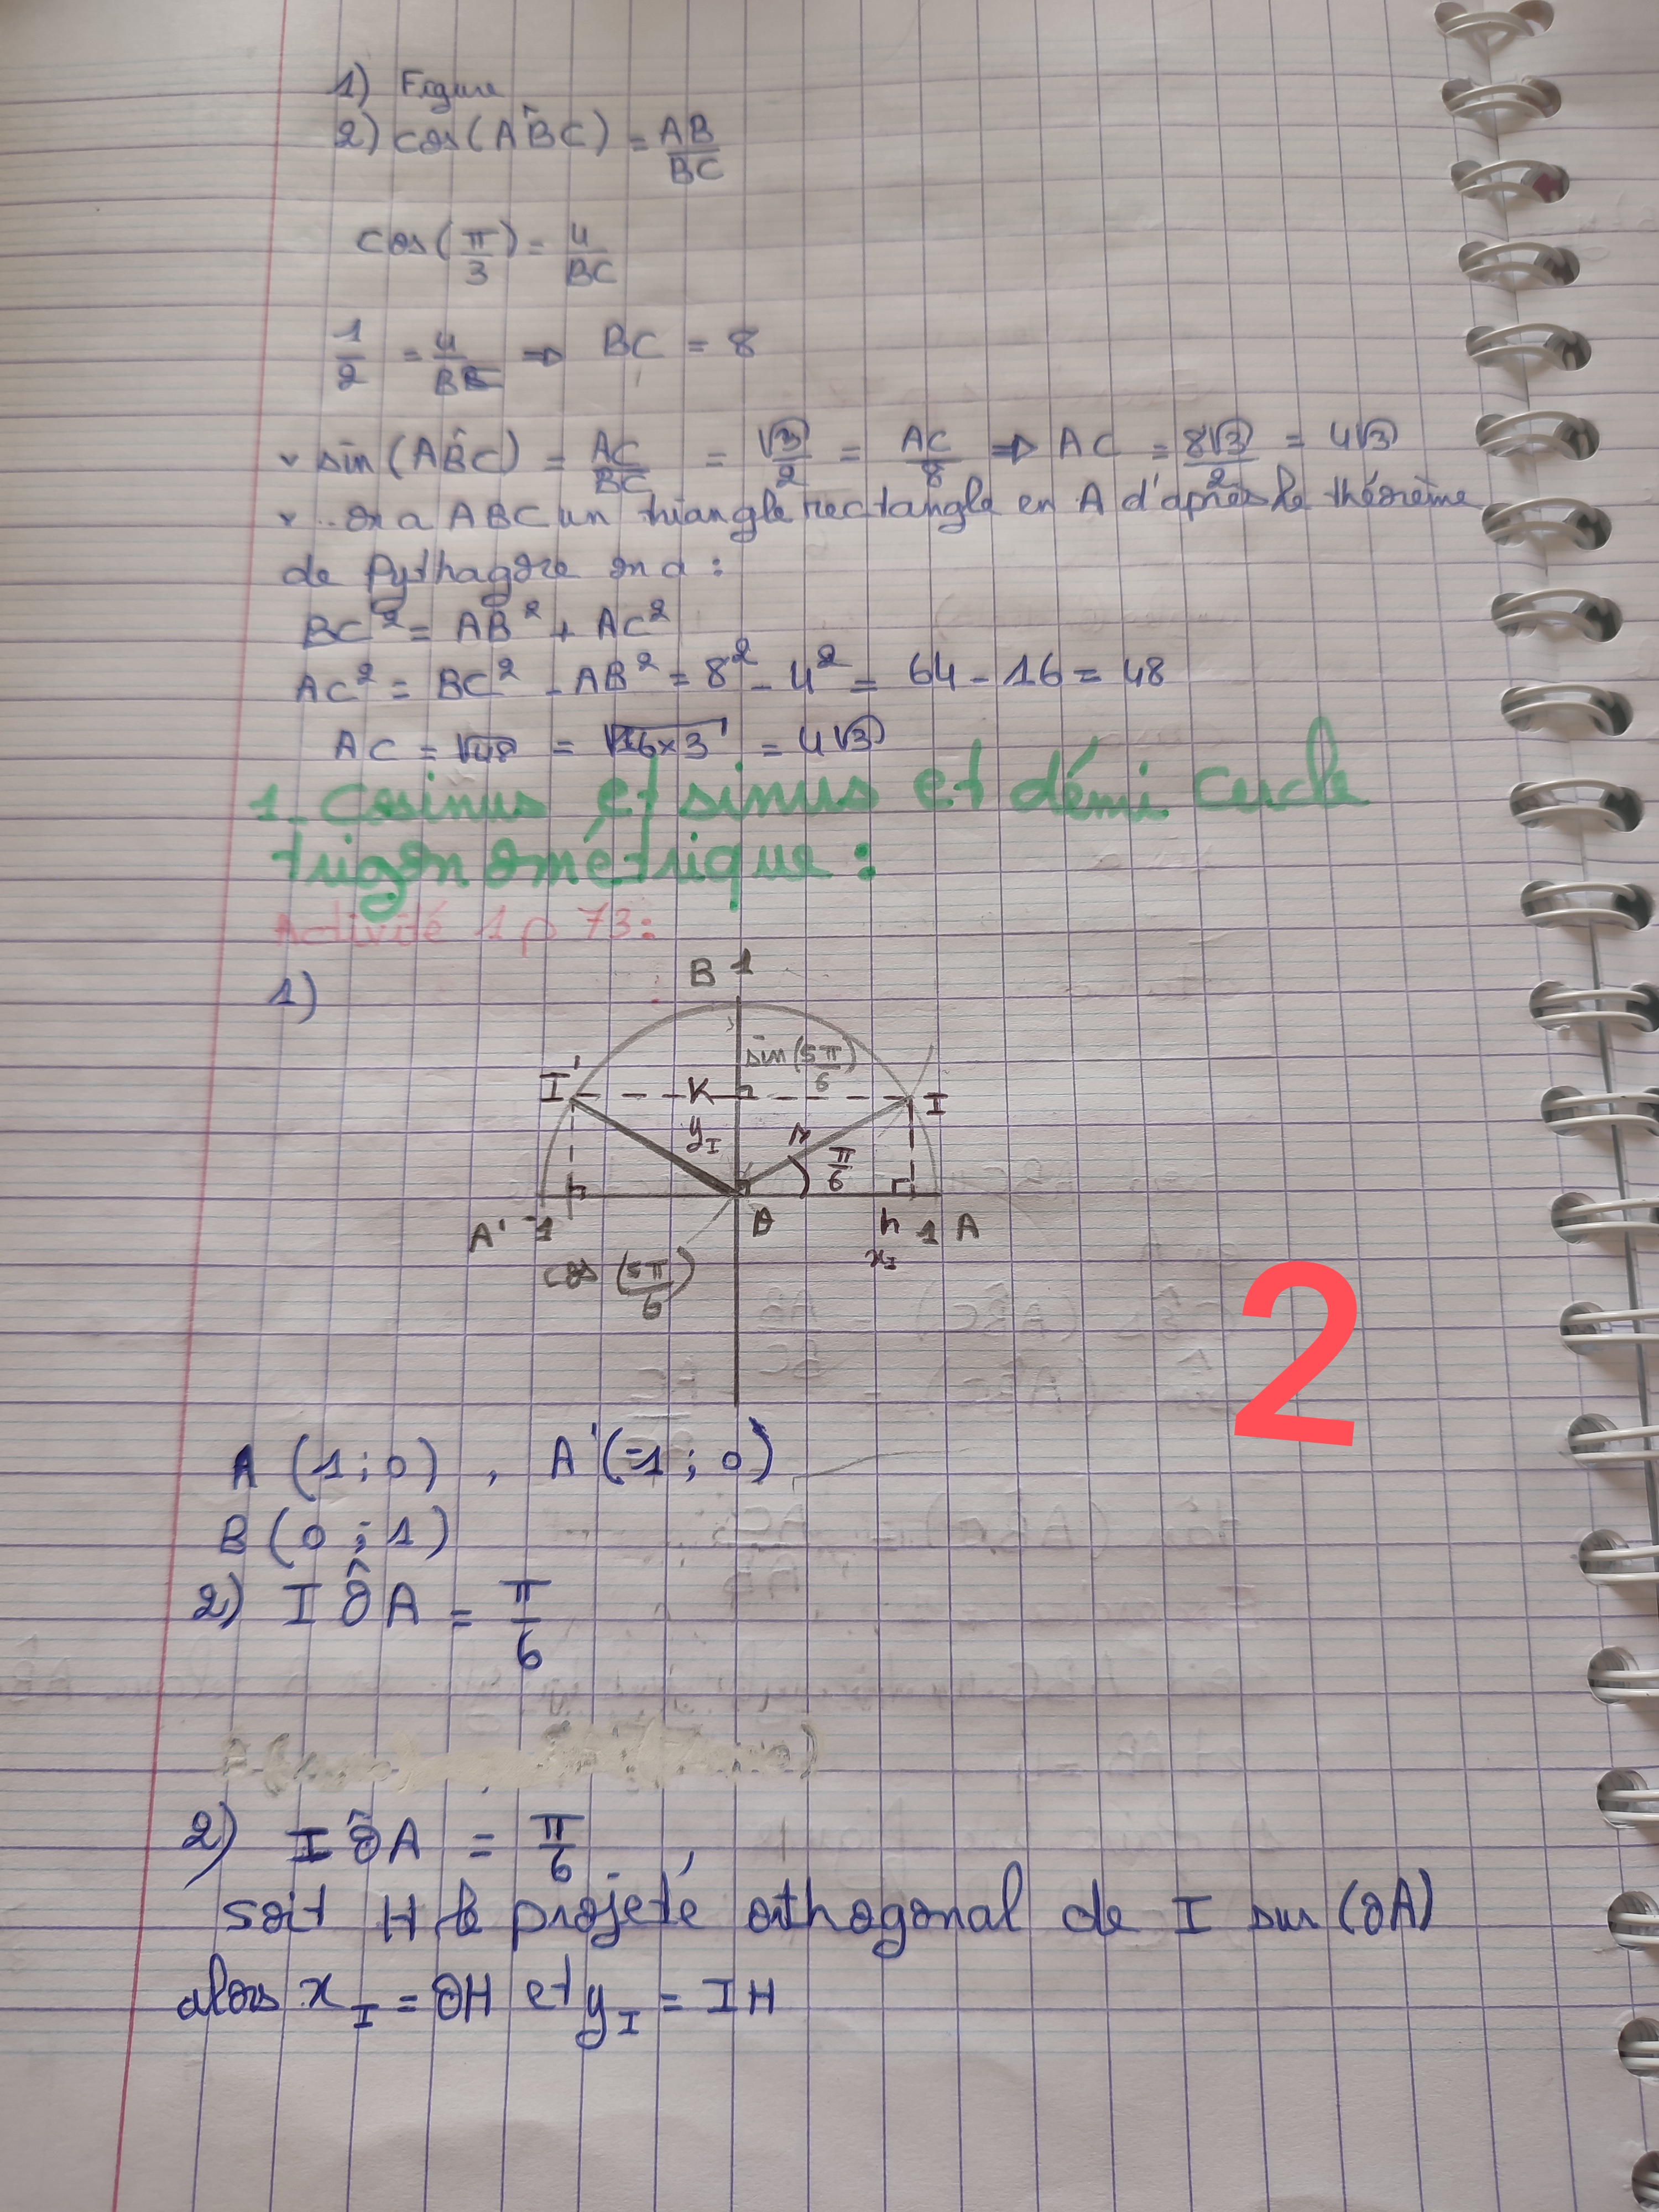 1) Figure
2) cos(AB̂C) = AB/BC
cos(π/3) = 4/BC
1/2 = 4/BC ⇒ BC = 8
sin(AB̂C) = AC/BC = √3/2 = AC/8 ⇒ AC = 8√3/2 = 4√3
.. on a ABC un triangle rectangle en A d'après le théorème
de Pythagore on a :
BC² = AB² + AC²
AC² = BC² - AB² = 8² - 4² = 64 - 16 = 48
AC = √48 = √16×3 = 4√3
1_ Cosinus et sinus et démi cercle
trigonométrique :
Activité 1 p 73:
1)
B 1
sin(5π/6)
I' K I
y_I
π/6
A' -1 O h 1 A
x_I
cos(5π/6)
2
A (1;0) , A'(-1;0)
B (0;1)
2) IÔA = π/6
2) IÔA = π/6
soit H le projeté orthogonal de I sur (OA)
alors x_I = OH et y_I = IH